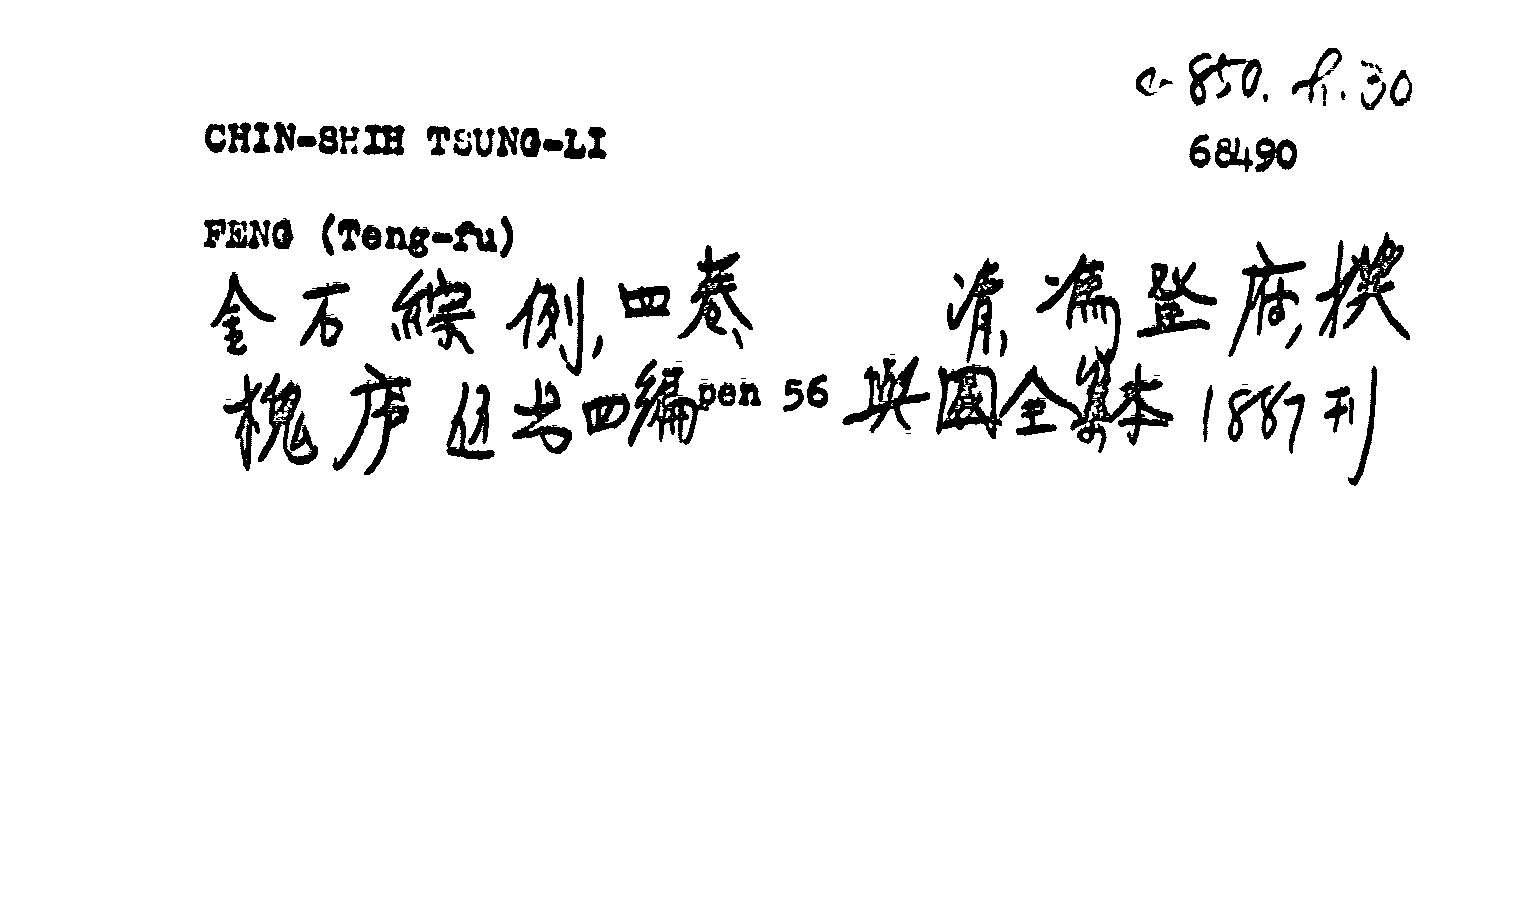 c. 850. h. 30
68490
CHIN-SHIH TSUNG-LI
FENG (Teng-fu)
金石綜例, 四卷, 清, 馮登府, 撰
槐廬叢書四編 pen 56 與國全集本 1887 刊